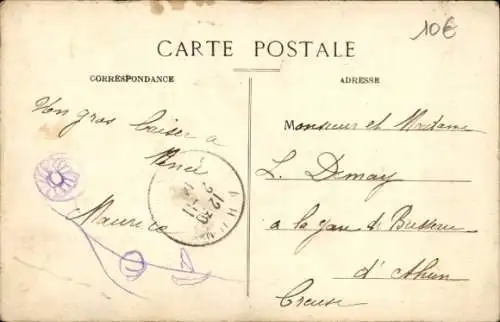 10€
CARTE POSTALE
CORRESPONDANCE
ADRESSE
Un gros baiser a
René
Maurice
Monsieur et Madame
L. Demay
a la gare de Busseau
d'Ahun
Creuse
AHUN
12 30